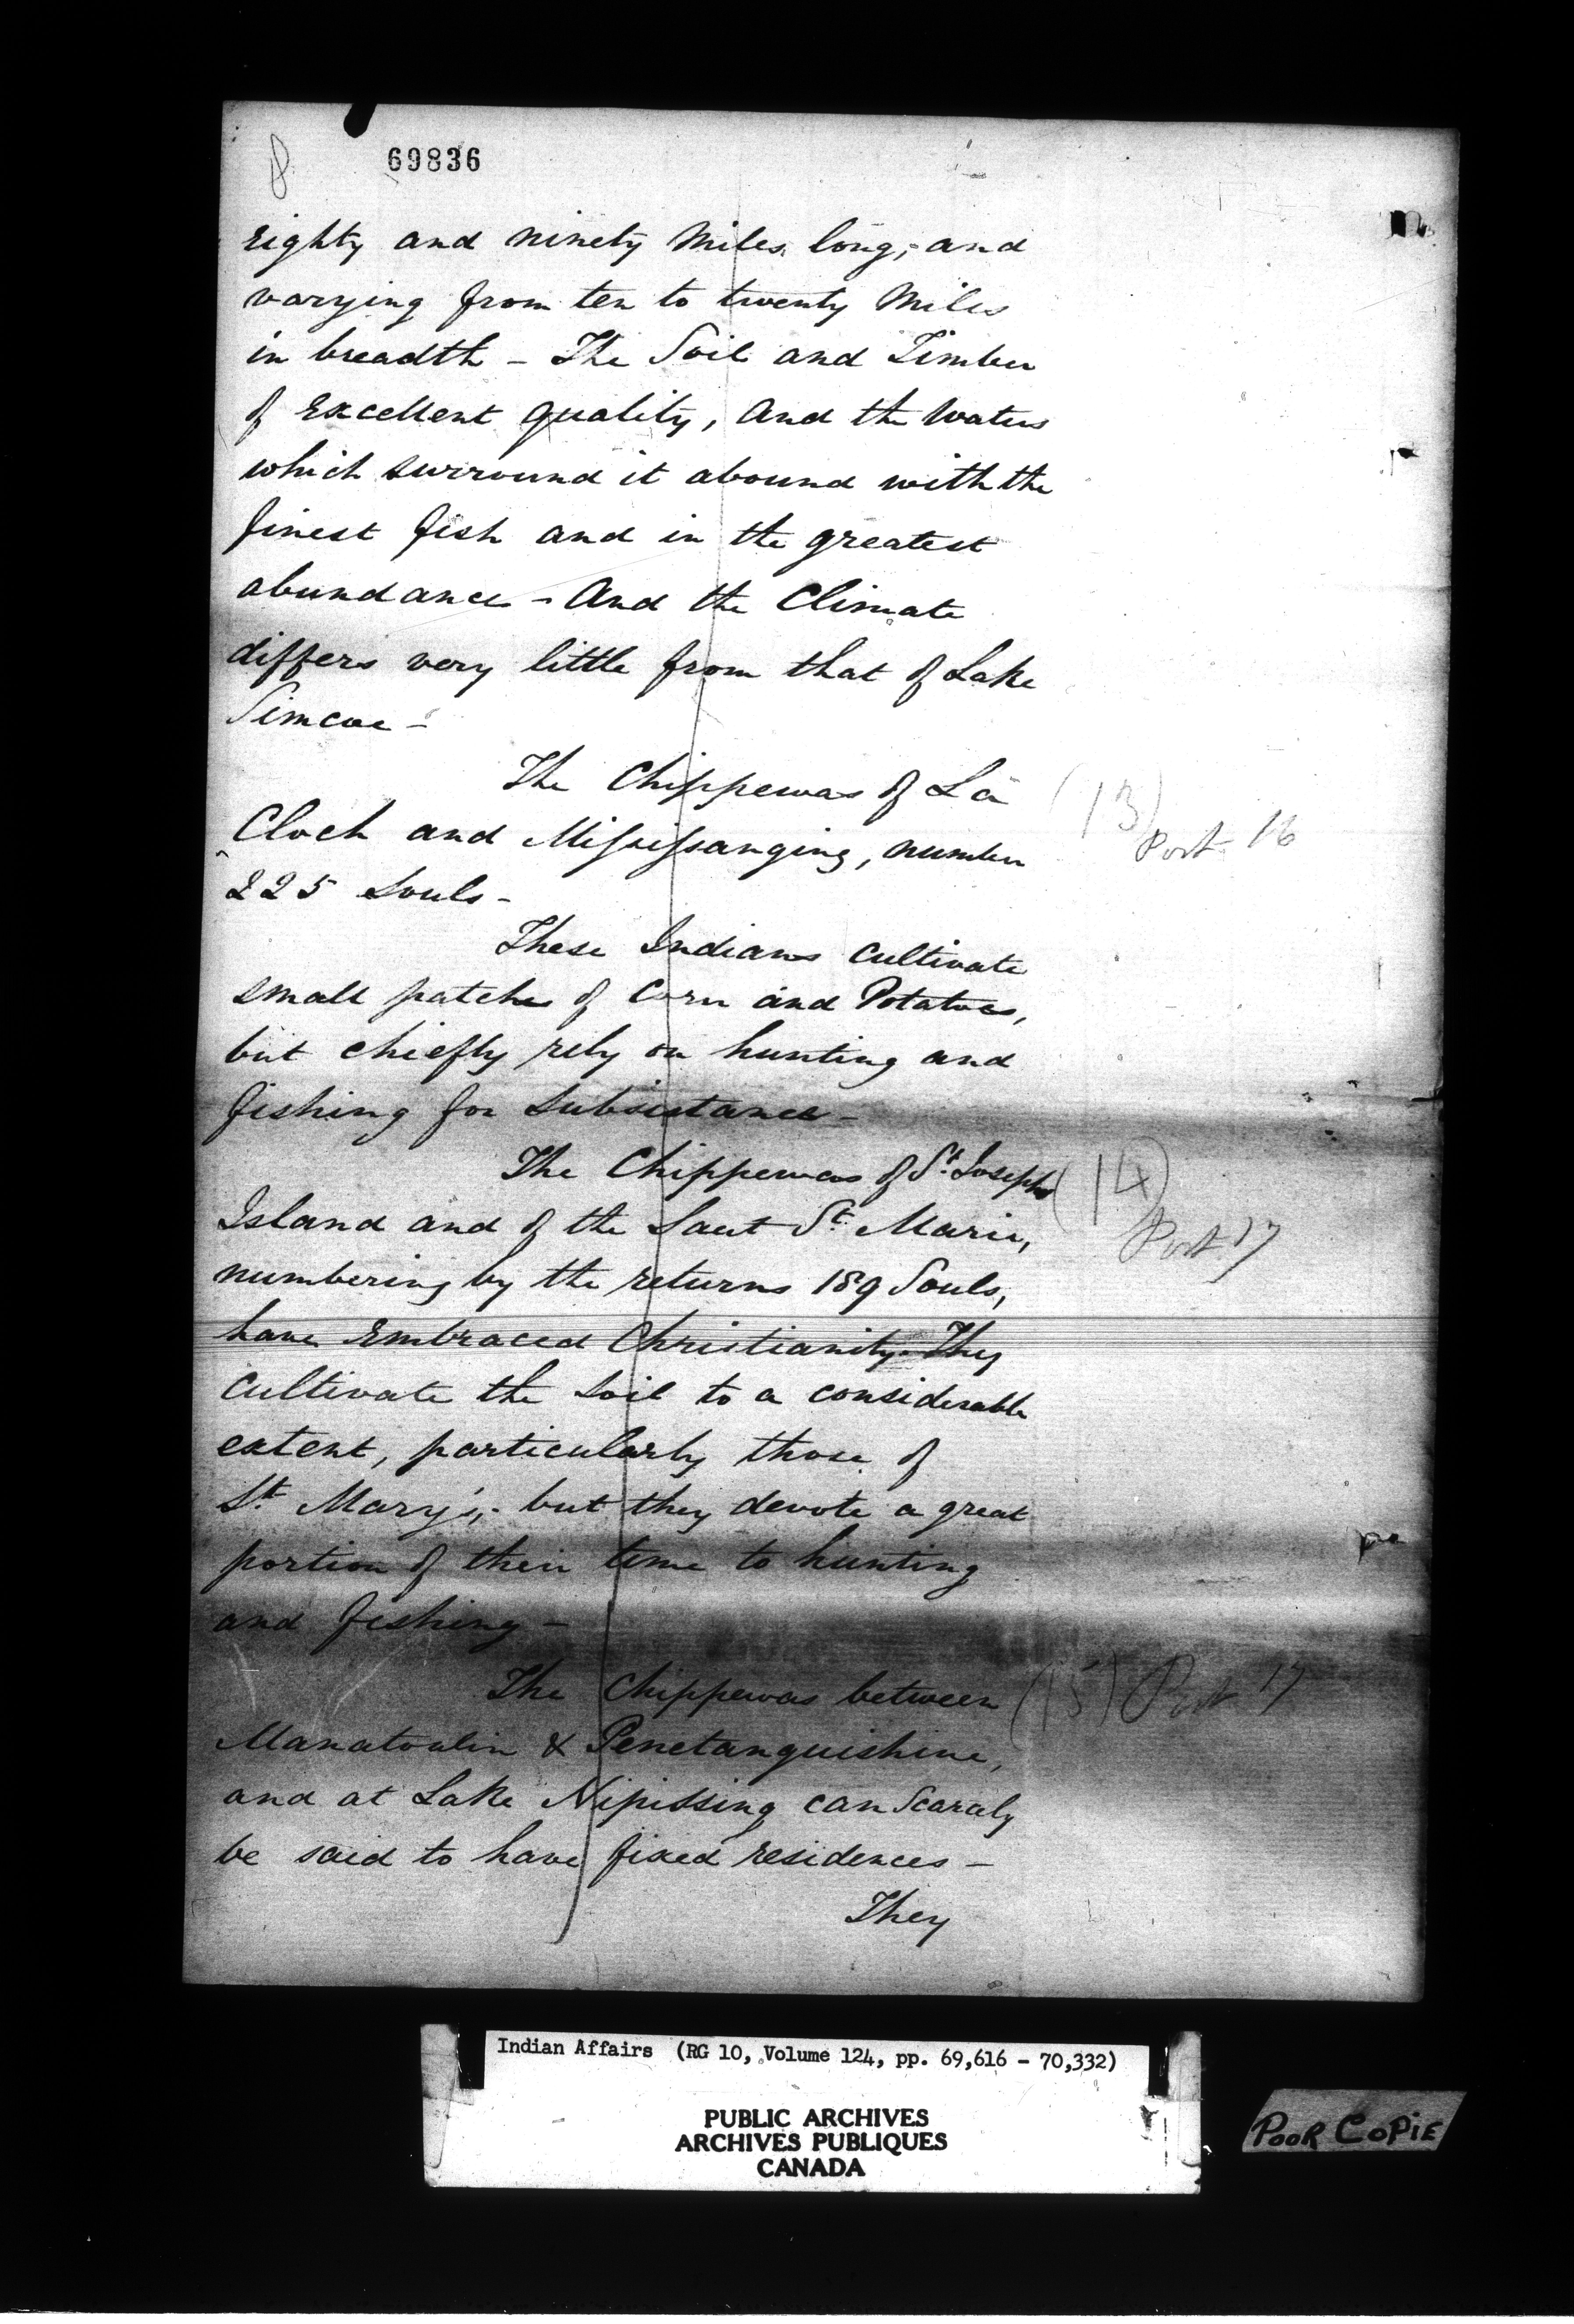 8
69836
Eighty and ninety Miles long,- and
varying from ten to twenty Miles
in breadth - The Soil and Timber
of Excellent quality, And the Waters
which surround it abound with the
finest fish and in the greatest
abundance - And the Climate
differs very little from that of Lake
Simcoe -
The Chippewas of La
Cloch and Missisanging, number
(13)
Post 16
225 Souls -
These Indians Cultivate
small patches of Corn and Potatoes,
but chiefly rely on hunting and
fishing for Subsistance -
The Chippewas of St. Josephs
(14)
Island and of the Saut St. Marie,
Post 17
numbering by the returns 189 Souls,
have Embraced Christianity. They
Cultivate the Soil to a considerable
extent, particularly those of
St. Mary's,- but they devote a great
portion of their time to hunting
and fishing -
The Chippewas between
(15) Post 17
Manatoulin & Penetanguishine,
and at Lake Nipissing can Scarcely
be said to have fixed residences -
They
Indian Affairs (RG 10, Volume 124, pp. 69,616 - 70,332)
PUBLIC ARCHIVES
ARCHIVES PUBLIQUES
CANADA
POOR COPIE